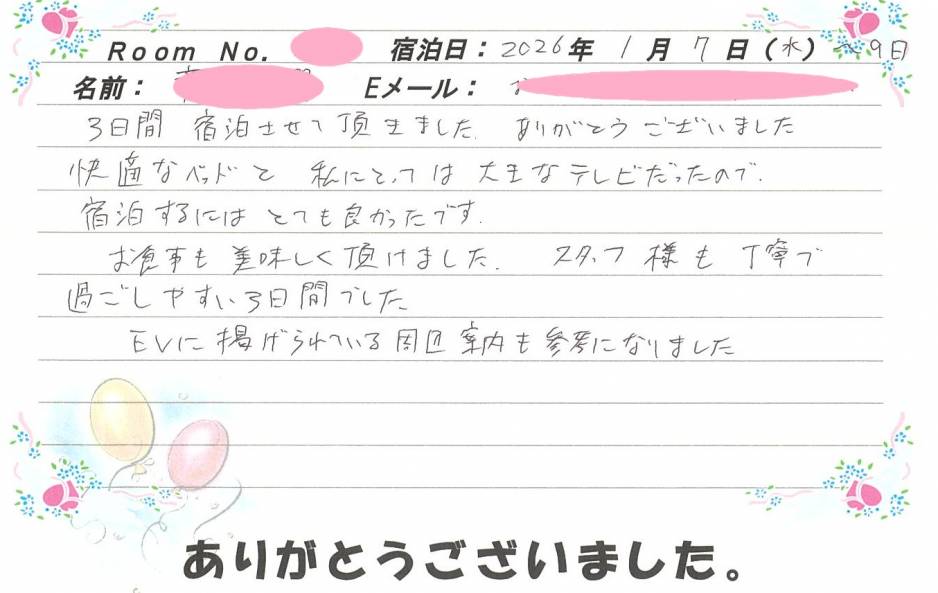 Room No. 宿泊日：2026年 1月 7日（水）〜9日
名前： Eメール：
3日間 宿泊させて頂きました. ありがとうございました
快適なベッドと 私にとっては 大きなテレビだったので.
宿泊するにはとても良かったです.
お食事も美味しく頂けました. スタッフ様も丁寧で
過ごしやすい3日間でした
EVに掲げられている周辺案内も参考になりました
ありがとうございました。